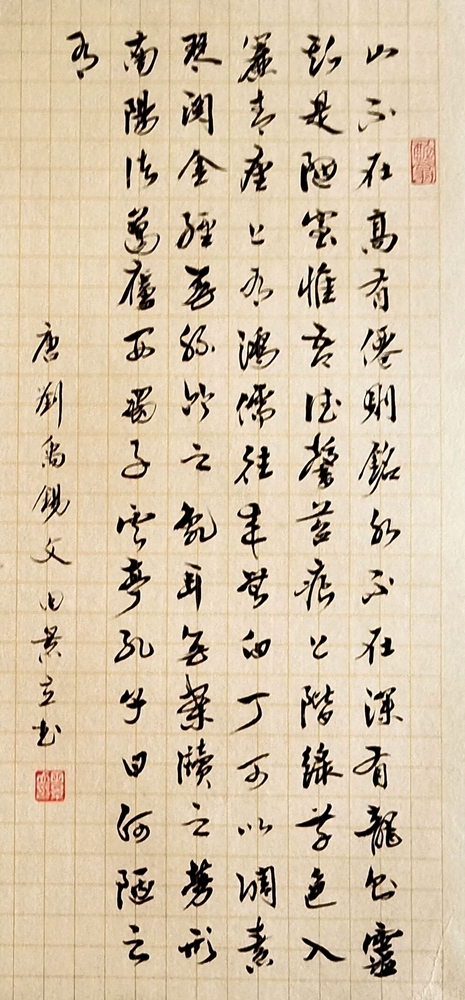 山不在高有僊則銘水不在深有龍則靈
斯是陋室惟吾德馨苔痕上階綠草色入
簾青座上有鴻儒往来無白丁可以調素
琴閱金經無絲竹之亂耳無案牘之勞形
南陽諸葛廬西蜀子雲亭孔子曰何陋之
有
唐劉禹錫文景立书